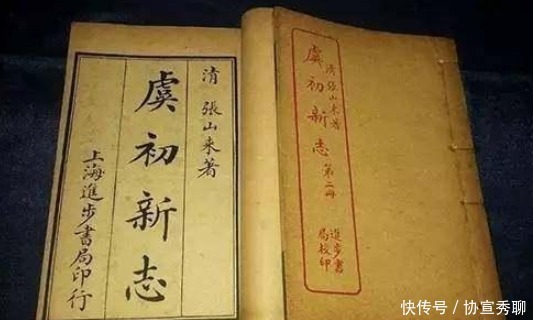 清 張山来著
虞初新志
上海進步書局印行
清 張山来著
虞初新志
第二冊
進步書
局校印
快传号／协宣秀聊